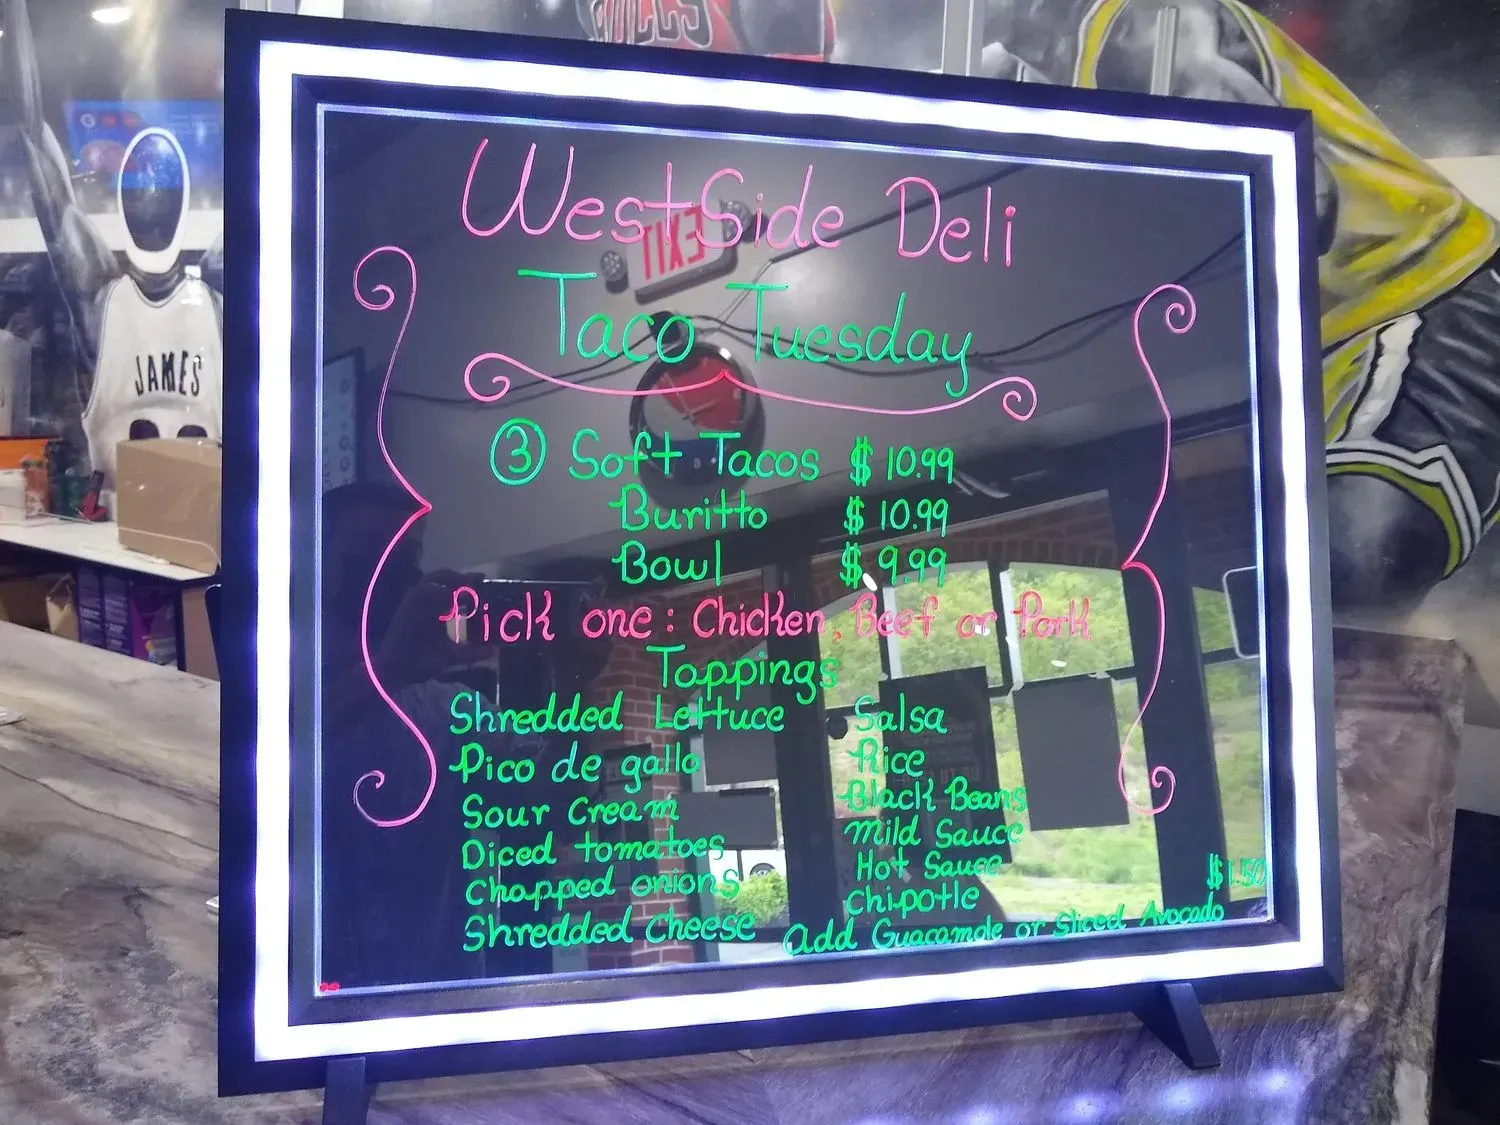 BULLS
JAMES
EXIT
WestSide Deli
Taco Tuesday
③ Soft Tacos $10.99
Buritto $10.99
Bowl $9.99
Pick one: Chicken, Beef or Pork
Toppings
Shredded Lettuce
Pico de gallo
Sour Cream
Diced tomatoes
Chopped onions
Shredded Cheese
Salsa
Rice
Black Beans
Mild Sauce
Hot Sauce
Chipotle
Add Guacamole or Sliced Avocado $1.50